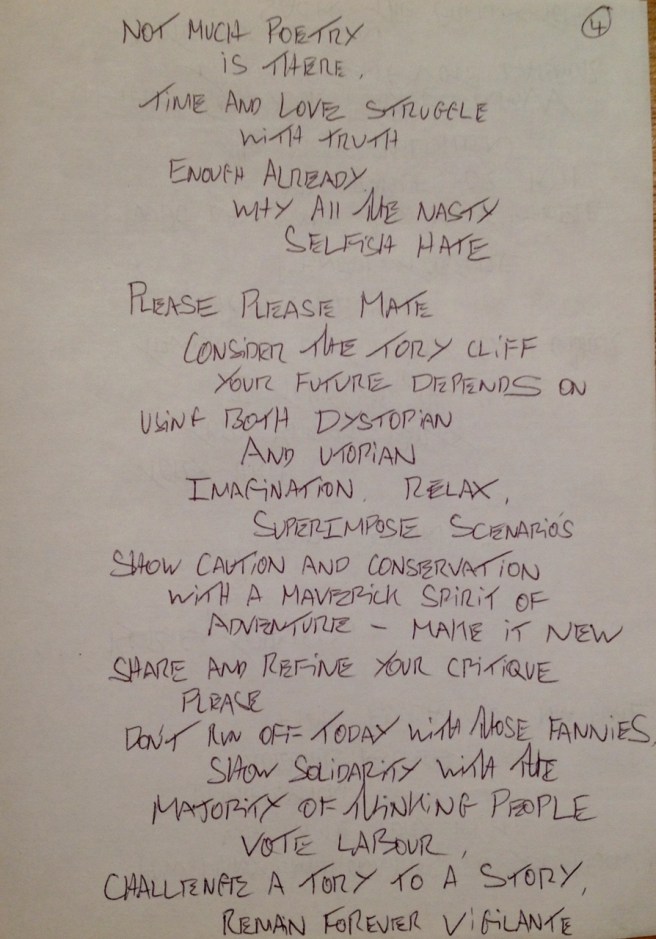 4
NOT MUCH POETRY
IS THERE.
TIME AND LOVE STRUGGLE
WITH TRUTH
ENOUGH ALREADY
WHY ALL THE NASTY
SELFISH HATE
PLEASE PLEASE MATE
CONSIDER THE TORY CLIFF
YOUR FUTURE DEPENDS ON
USING BOTH DYSTOPIAN
AND UTOPIAN
IMAGINATION. RELAX,
SUPERIMPOSE SCENARIO'S
SHOW CAUTION AND CONSERVATION
WITH A MAVERICK SPIRIT OF
ADVENTURE – MAKE IT NEW
SHARE AND REFINE YOUR CRITIQUE
PLEASE
DON'T RUN OFF TODAY WITH THOSE FANNIES,
SHOW SOLIDARITY WITH THE
MAJORITY OF THINKING PEOPLE
VOTE LABOUR,
CHALLENGE A TORY TO A STORY,
REMAN FOREVER VIGILANTE